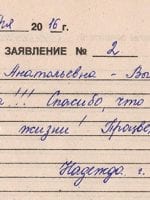 ря 2016 г.
ЗАЯВЛЕНИЕ № 2
Анатольевна - Вы
а!!! Спасибо, что
жизни!
Надежда г.